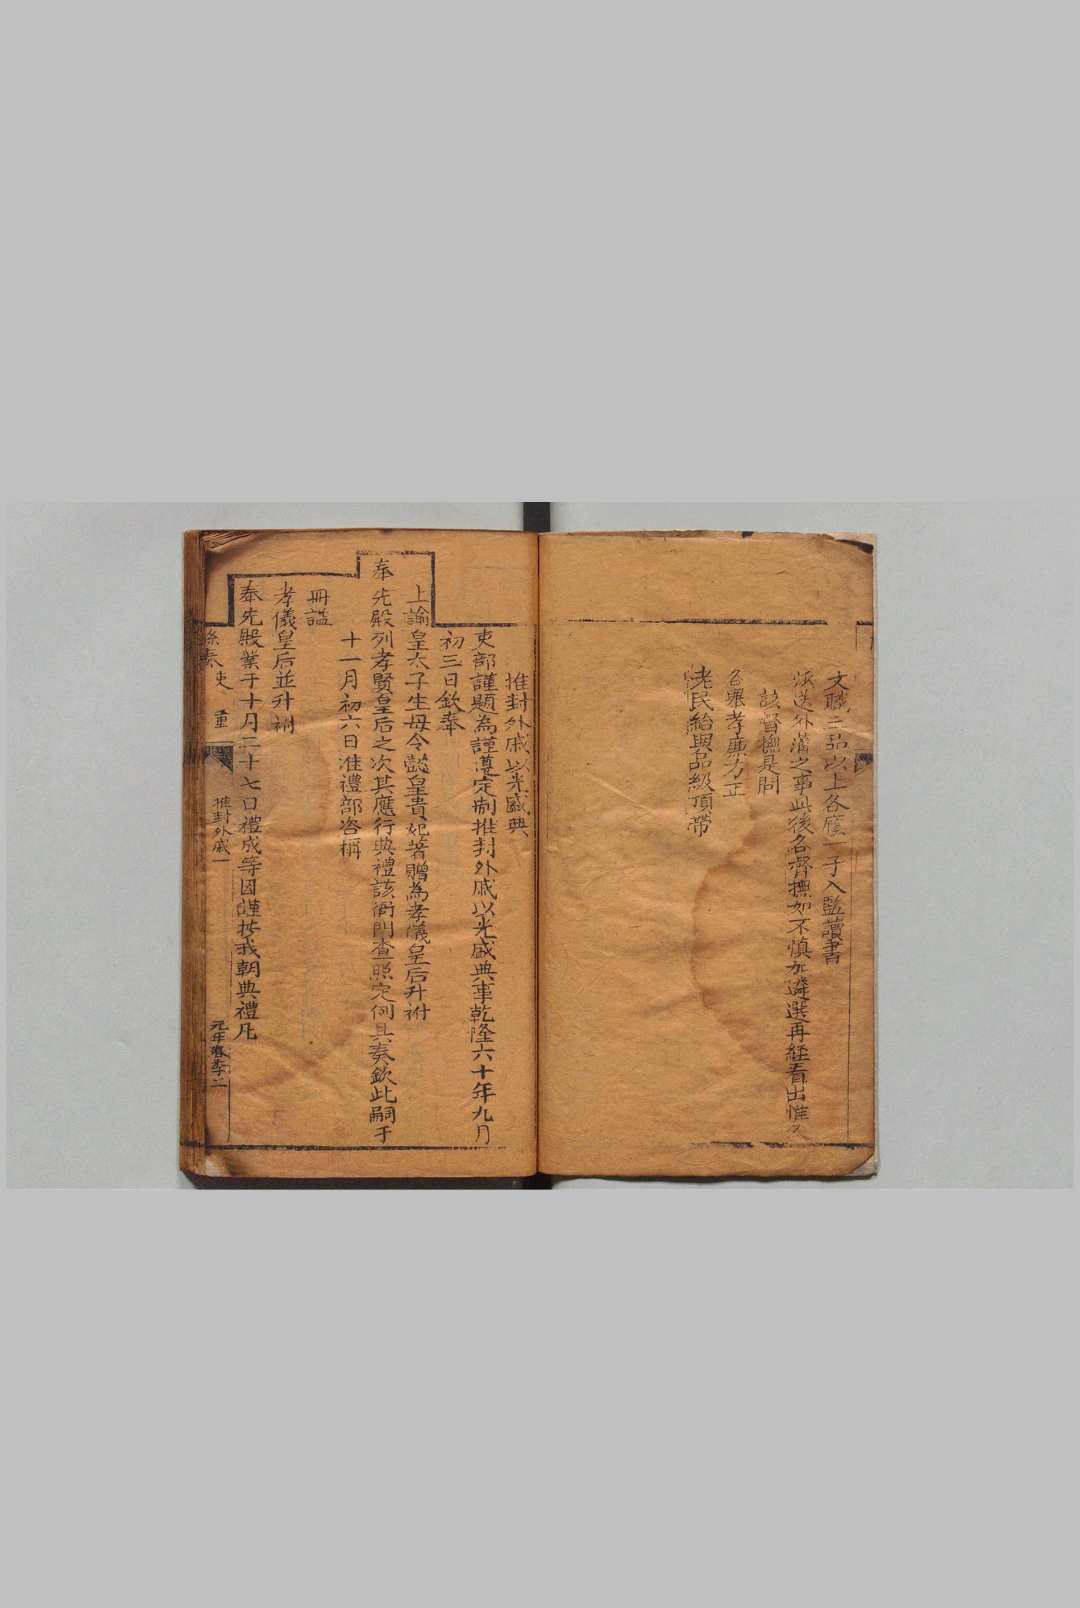 文職三品以上各廕一子入監讀書
濫送外藩之事此後各督撫如不慎加遴選再經看出惟
該督撫是問
各舉孝廉方正
老民給與品級頂帶
推封外戚以光盛典
吏部謹題為謹遵定制推封外戚以光盛典事乾隆六十年九月
初三日欽奉
上諭皇太子生母令懿皇貴妃著贈為孝儀皇后升祔
奉先殿列孝賢皇后之次其應行典禮該衙門查照定例具奏欽此嗣于
十一月初六日准禮部咨稱
冊諡
孝儀皇后並升祔
奉先殿業于十月二十七日禮成等因謹按我朝典禮凡
条奏 吏 重 推封外戚一 元年春季二